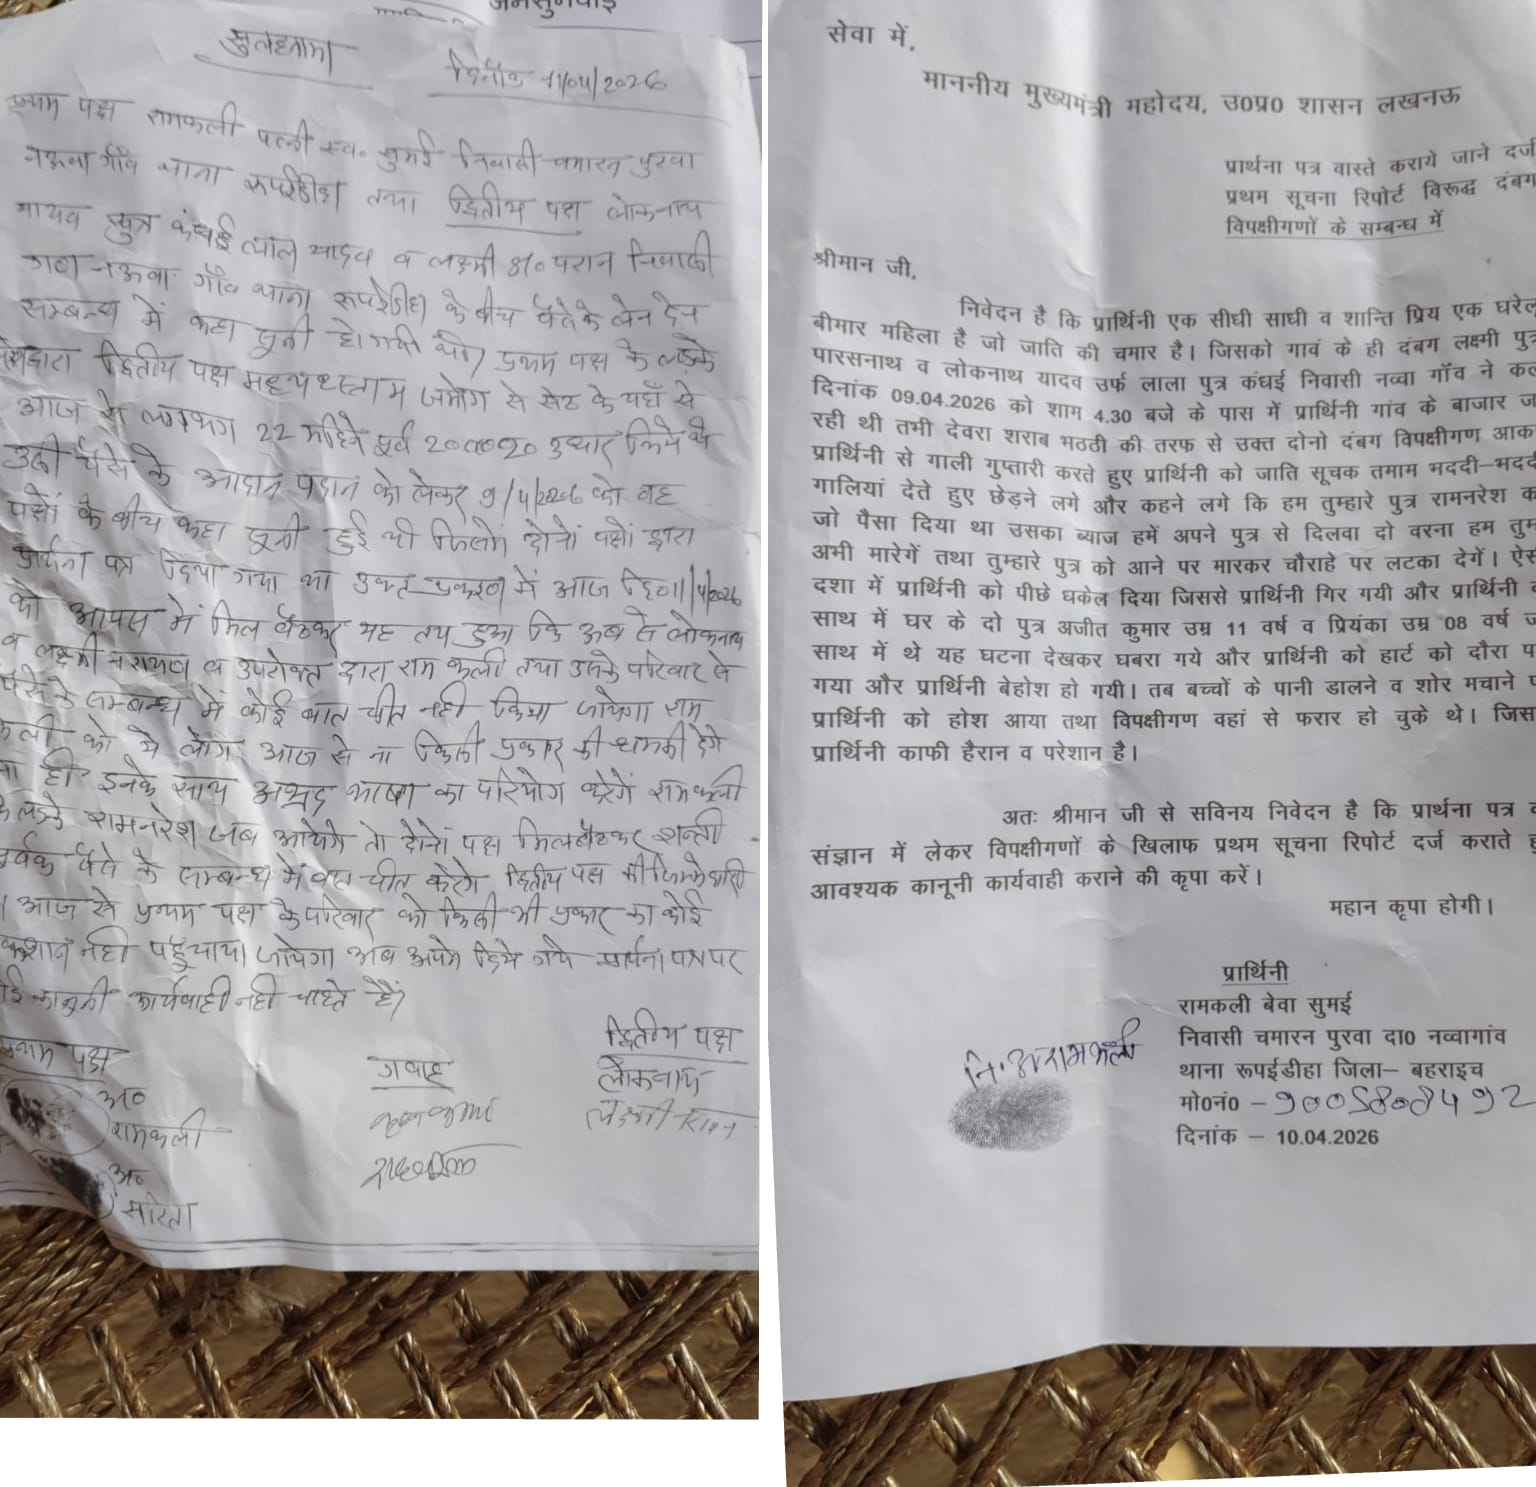 जनसुनवाई
सुलहनामा
दिनाँक 11/04/2026
प्रथम पक्ष रामकली पत्नी स्व० सुमई निवासी चमारन पुरवा
नऊवा गाँव थाना रूपईडीहा तथा द्वितीय पक्ष लोकनाथ
यादव पुत्र कंधई लाल यादव व लक्ष्मी निवासी
नऊवा गाँव थाना रूपईडीहा के बीच पैसे के लेन देन
सम्बन्ध में कहा सुनी हो गयी थी। प्रथम पक्ष के लड़के
द्वितीय पक्ष से सेठ के यहाँ से
आज से लगभग 22 महिने पूर्व उधार किये थे
उसी पैसे के आदान प्रदान को लेकर 9/4/2026 को यह
पक्षों के बीच कहा सुनी हुई थी जिसमें दोनों पक्षों द्वारा
प्रार्थना पत्र दिया गया था उक्त प्रकरण में आज दि० 11/4/2026
को आपस में मिल बैठकर यह तय हुआ कि अब से लोकनाथ
व लक्ष्मी नारायण व उपरोक्त द्वारा राम कली तथा उनके परिवार से
पैसे के सम्बन्ध में कोई बात चीत नही किया जायेगा राम
कली को ये लोग आज से ना किसी प्रकार की धमकी देगे
ना ही इनके साथ अभद्र भाषा का परियोग करेगें रामकली
के लड़के रामनरेश जब आयेगे तो दोनों पक्ष मिल बैठकर शान्ती
पूर्वक पैसे के सम्बन्ध में बात चीत करेगे द्वितीय पक्ष की जिम्मेदारी
आज से प्रथम पक्ष के परिवार को किसी भी प्रकार का कोई
नही पहुँचाया जायेगा अब अपने दिये गये प्रार्थना पत्र पर
कोई कानूनी कार्यवाही नही चाहते हैं।
प्रथम पक्ष
गवाह
द्वितीय पक्ष
लोकनाथ
अ०
रामकली
अ०
सरिता
सेवा में,
माननीय मुख्यमंत्री महोदय, उ0प्र0 शासन लखनऊ
प्रार्थना पत्र वास्ते कराये जाने दर्ज
प्रथम सूचना रिपोर्ट विरूद्ध दंबग
विपक्षीगणों के सम्बन्ध में
श्रीमान जी,
निवेदन है कि प्रार्थिनी एक सीधी साधी व शान्ति प्रिय एक घरेलू
बीमार महिला है जो जाति की चमार है। जिसको गावं के ही दंबग लक्ष्मी पुत्र
पारसनाथ व लोकनाथ यादव उर्फ लाला पुत्र कंधई निवासी नव्वा गाँव ने कल
दिनांक 09.04.2026 को शाम 4.30 बजे के पास में प्रार्थिनी गांव के बाजार जा
रही थी तभी देवरा शराब भठठी की तरफ से उक्त दोनो दंबग विपक्षीगण आकर
प्रार्थिनी से गाली गुप्तारी करते हुए प्रार्थिनी को जाति सूचक तमाम भददी-भददी
गालियां देते हुए छेड़ने लगे और कहने लगे कि हम तुम्हारे पुत्र रामनरेश को
जो पैसा दिया था उसका ब्याज हमें अपने पुत्र से दिलवा दो वरना हम तुम्हे
अभी मारेगें तथा तुम्हारे पुत्र को आने पर मारकर चौराहे पर लटका देगें। ऐसी
दशा में प्रार्थिनी को पीछे धकेल दिया जिससे प्रार्थिनी गिर गयी और प्रार्थिनी के
साथ में घर के दो पुत्र अजीत कुमार उम्र 11 वर्ष व प्रियंका उम्र 08 वर्ष जो
साथ में थे यह घटना देखकर घबरा गये और प्रार्थिनी को हार्ट को दौरा पड
गया और प्रार्थिनी बेहोश हो गयी। तब बच्चों के पानी डालने व शोर मचाने पर
प्रार्थिनी को होश आया तथा विपक्षीगण वहां से फरार हो चुके थे। जिससे
प्रार्थिनी काफी हैरान व परेशान है।
अतः श्रीमान जी से सविनय निवेदन है कि प्रार्थना पत्र को
संज्ञान में लेकर विपक्षीगणों के खिलाफ प्रथम सूचना रिपोर्ट दर्ज कराते हुए
आवश्यक कानूनी कार्यवाही कराने की कृपा करें।
महान कृपा होगी।
प्रार्थिनी
रामकली बेवा सुमई
निवासी चमारन पुरवा दा0 नव्वागांव
थाना रूपईडीहा जिला– बहराइच
मो0नं0 - 9005808492
दिनांक – 10.04.2026
नि.अ रामकली